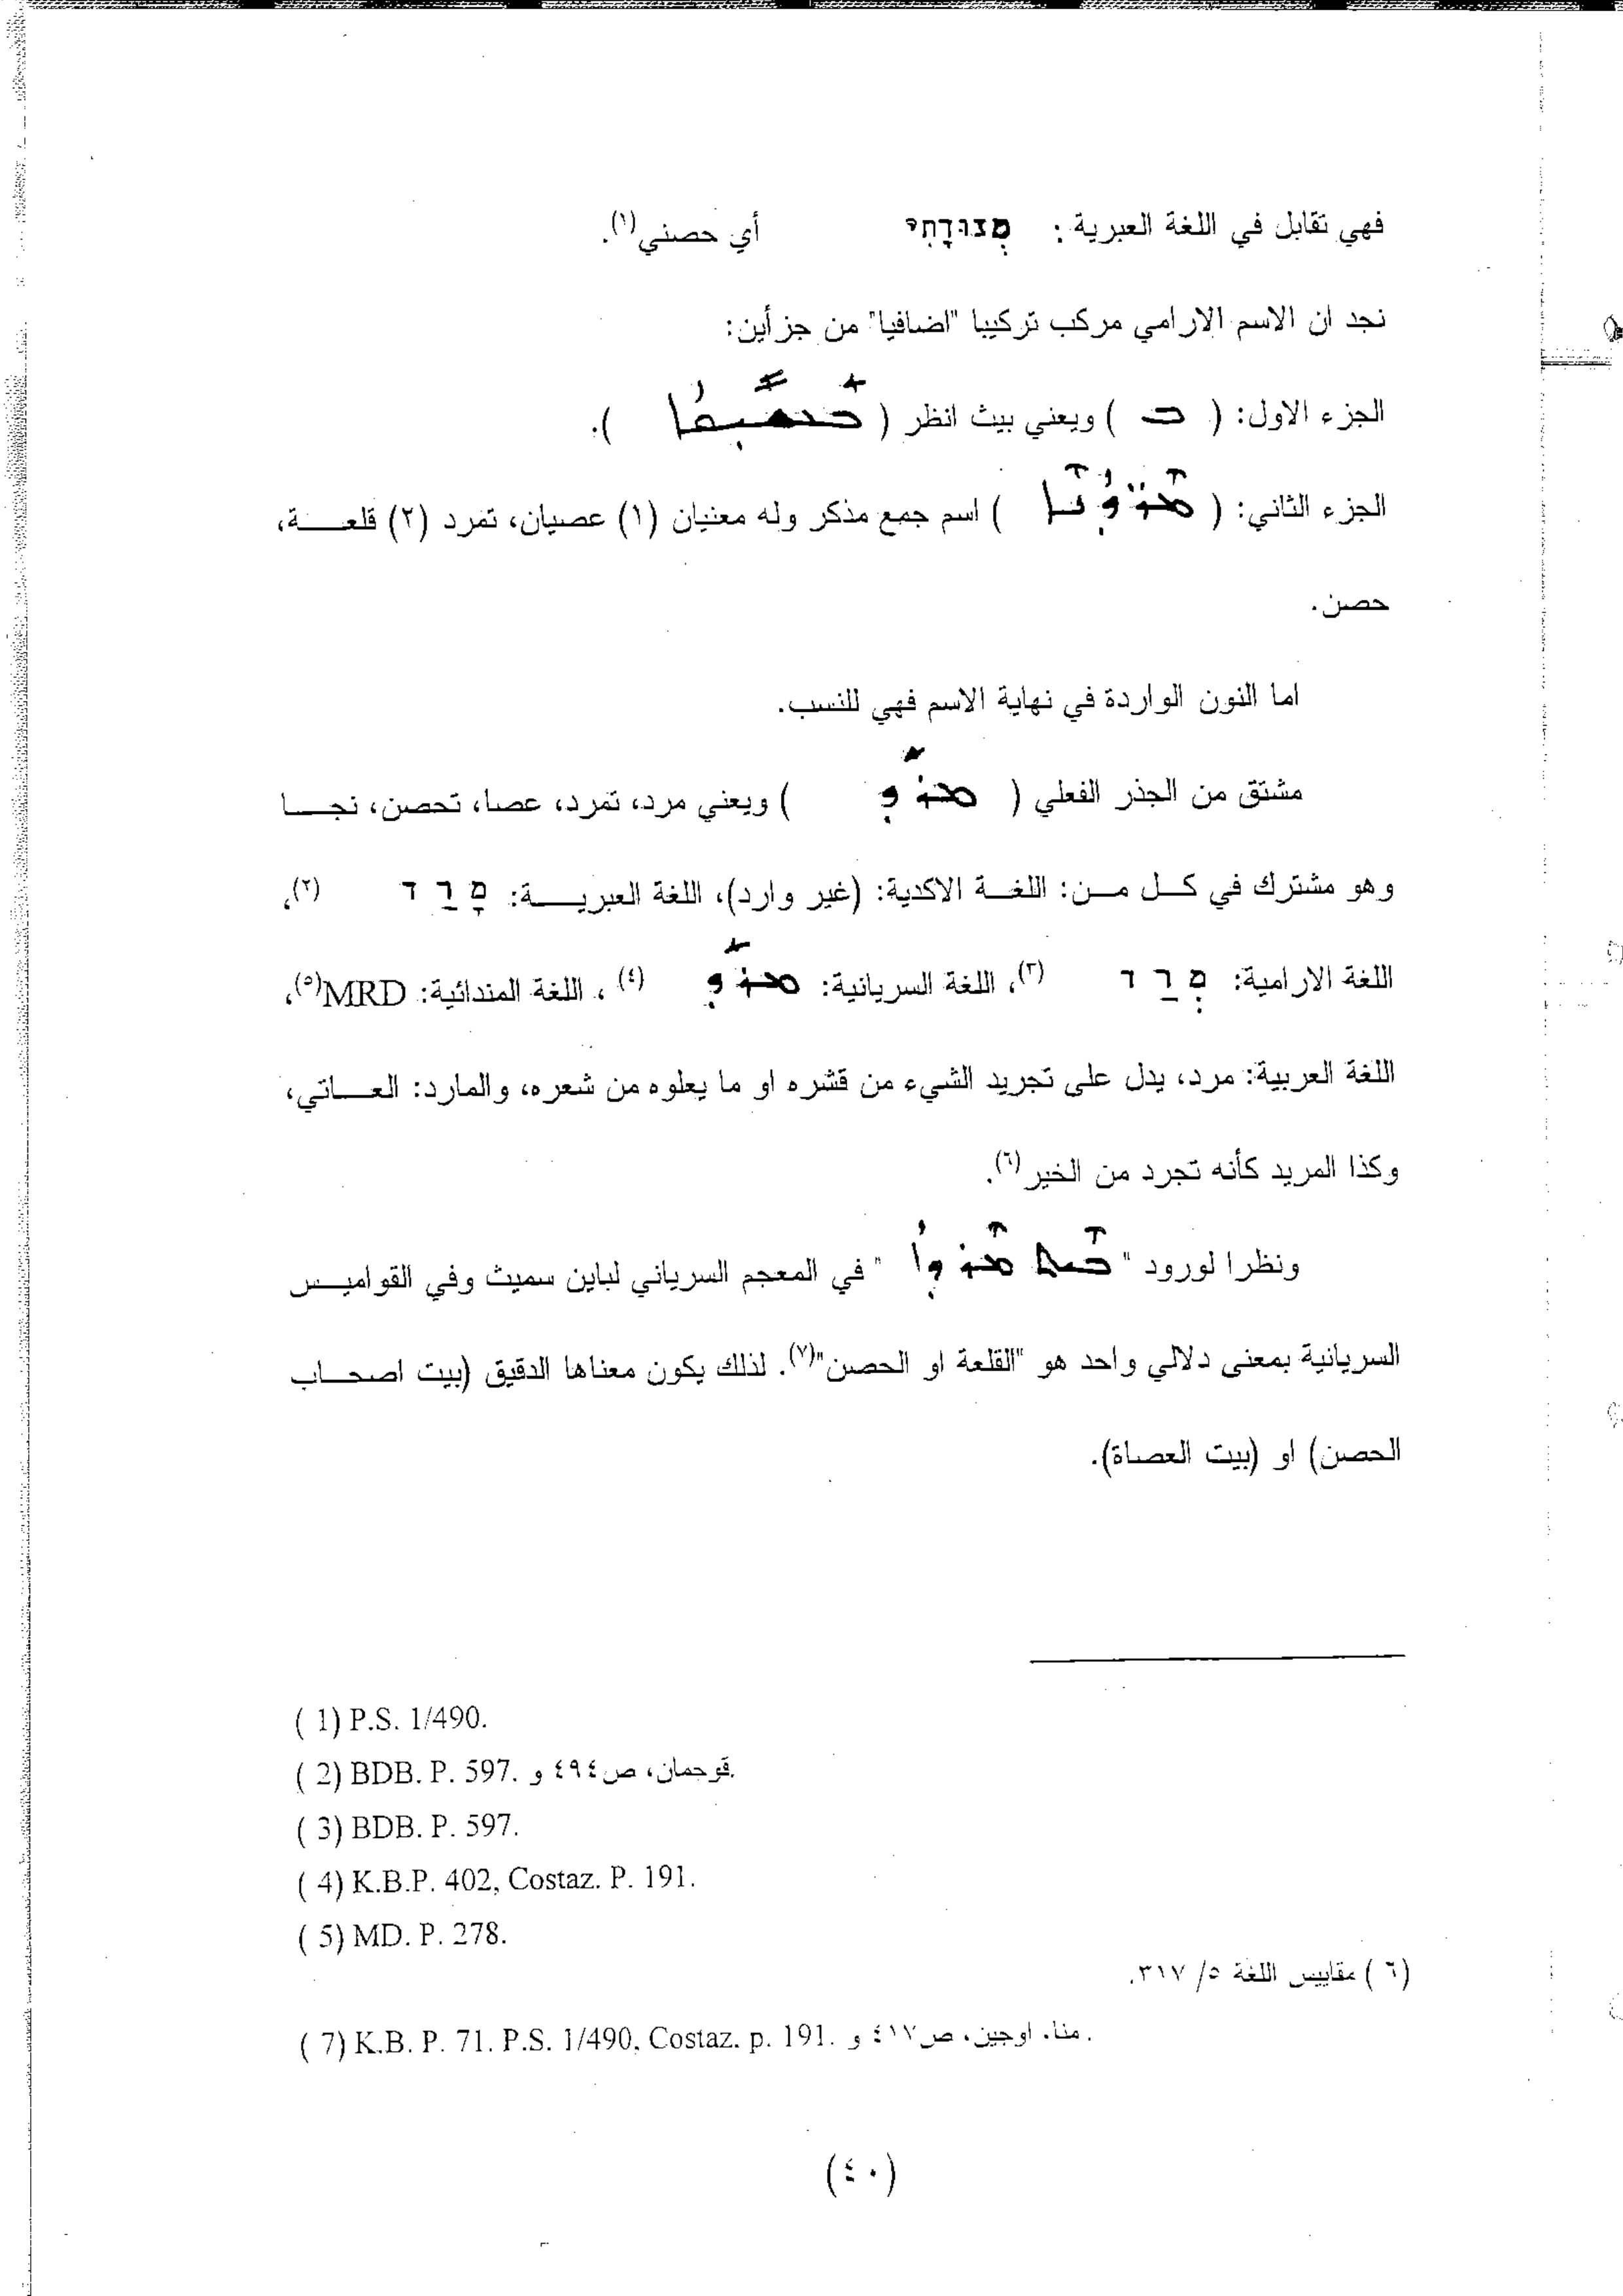 فهي تقابل في اللغة العبرية : מְצוּדָתִי أي حصني(١).
نجد ان الاسم الارامي مركب تركيبا "اضافيا" من جزأين:
الجزء الاول: ( ܒ ) ويعني بيث انظر ( ).
الجزء الثاني: ( ) اسم جمع مذكر وله معنيان (١) عصيان، تمرد (٢) قلعـــة،
حصن.
اما النون الواردة في نهاية الاسم فهي للنسب.
مشتق من الجذر الفعلي ( ܡܪܕ ) ويعني مرد، تمرد، عصا، تحصن، نجـــا
وهو مشترك في كـل مـن: اللغـة الاكدية: (غير وارد)، اللغة العبريـــة: מָרַד (٢)،
اللغة الارامية: מְרַד (٣)، اللغة السريانية: ܡܪܕ (٤) ، اللغة المندائية: MRD(٥)،
اللغة العربية: مرد، يدل على تجريد الشيء من قشره او ما يعلوه من شعره، والمارد: العـــاتي،
وكذا المريد كأنه تجرد من الخير(٦).
ونظرا لورود " ܒܝܬ ܡܪܕܐ " في المعجم السرياني لباين سميث وفي القواميـــس
السريانية بمعنى دلالي واحد هو "القلعة او الحصن"(٧). لذلك يكون معناها الدقيق (بيت اصحـــاب
الحصن) او (بيت العصاة).
( 1) P.S. 1/490.
( 2) BDB. P. 597. قوجمان، ص٤٩٤ و.
( 3) BDB. P. 597.
( 4) K.B.P. 402, Costaz. P. 191.
( 5) MD. P. 278.
(٦ ) مقاييس اللغة ٥/ ٣١٧.
( 7) K.B. P. 71. P.S. 1/490, Costaz. p. 191. منا، اوجين، ص٤١٧ و .
(٤٠)